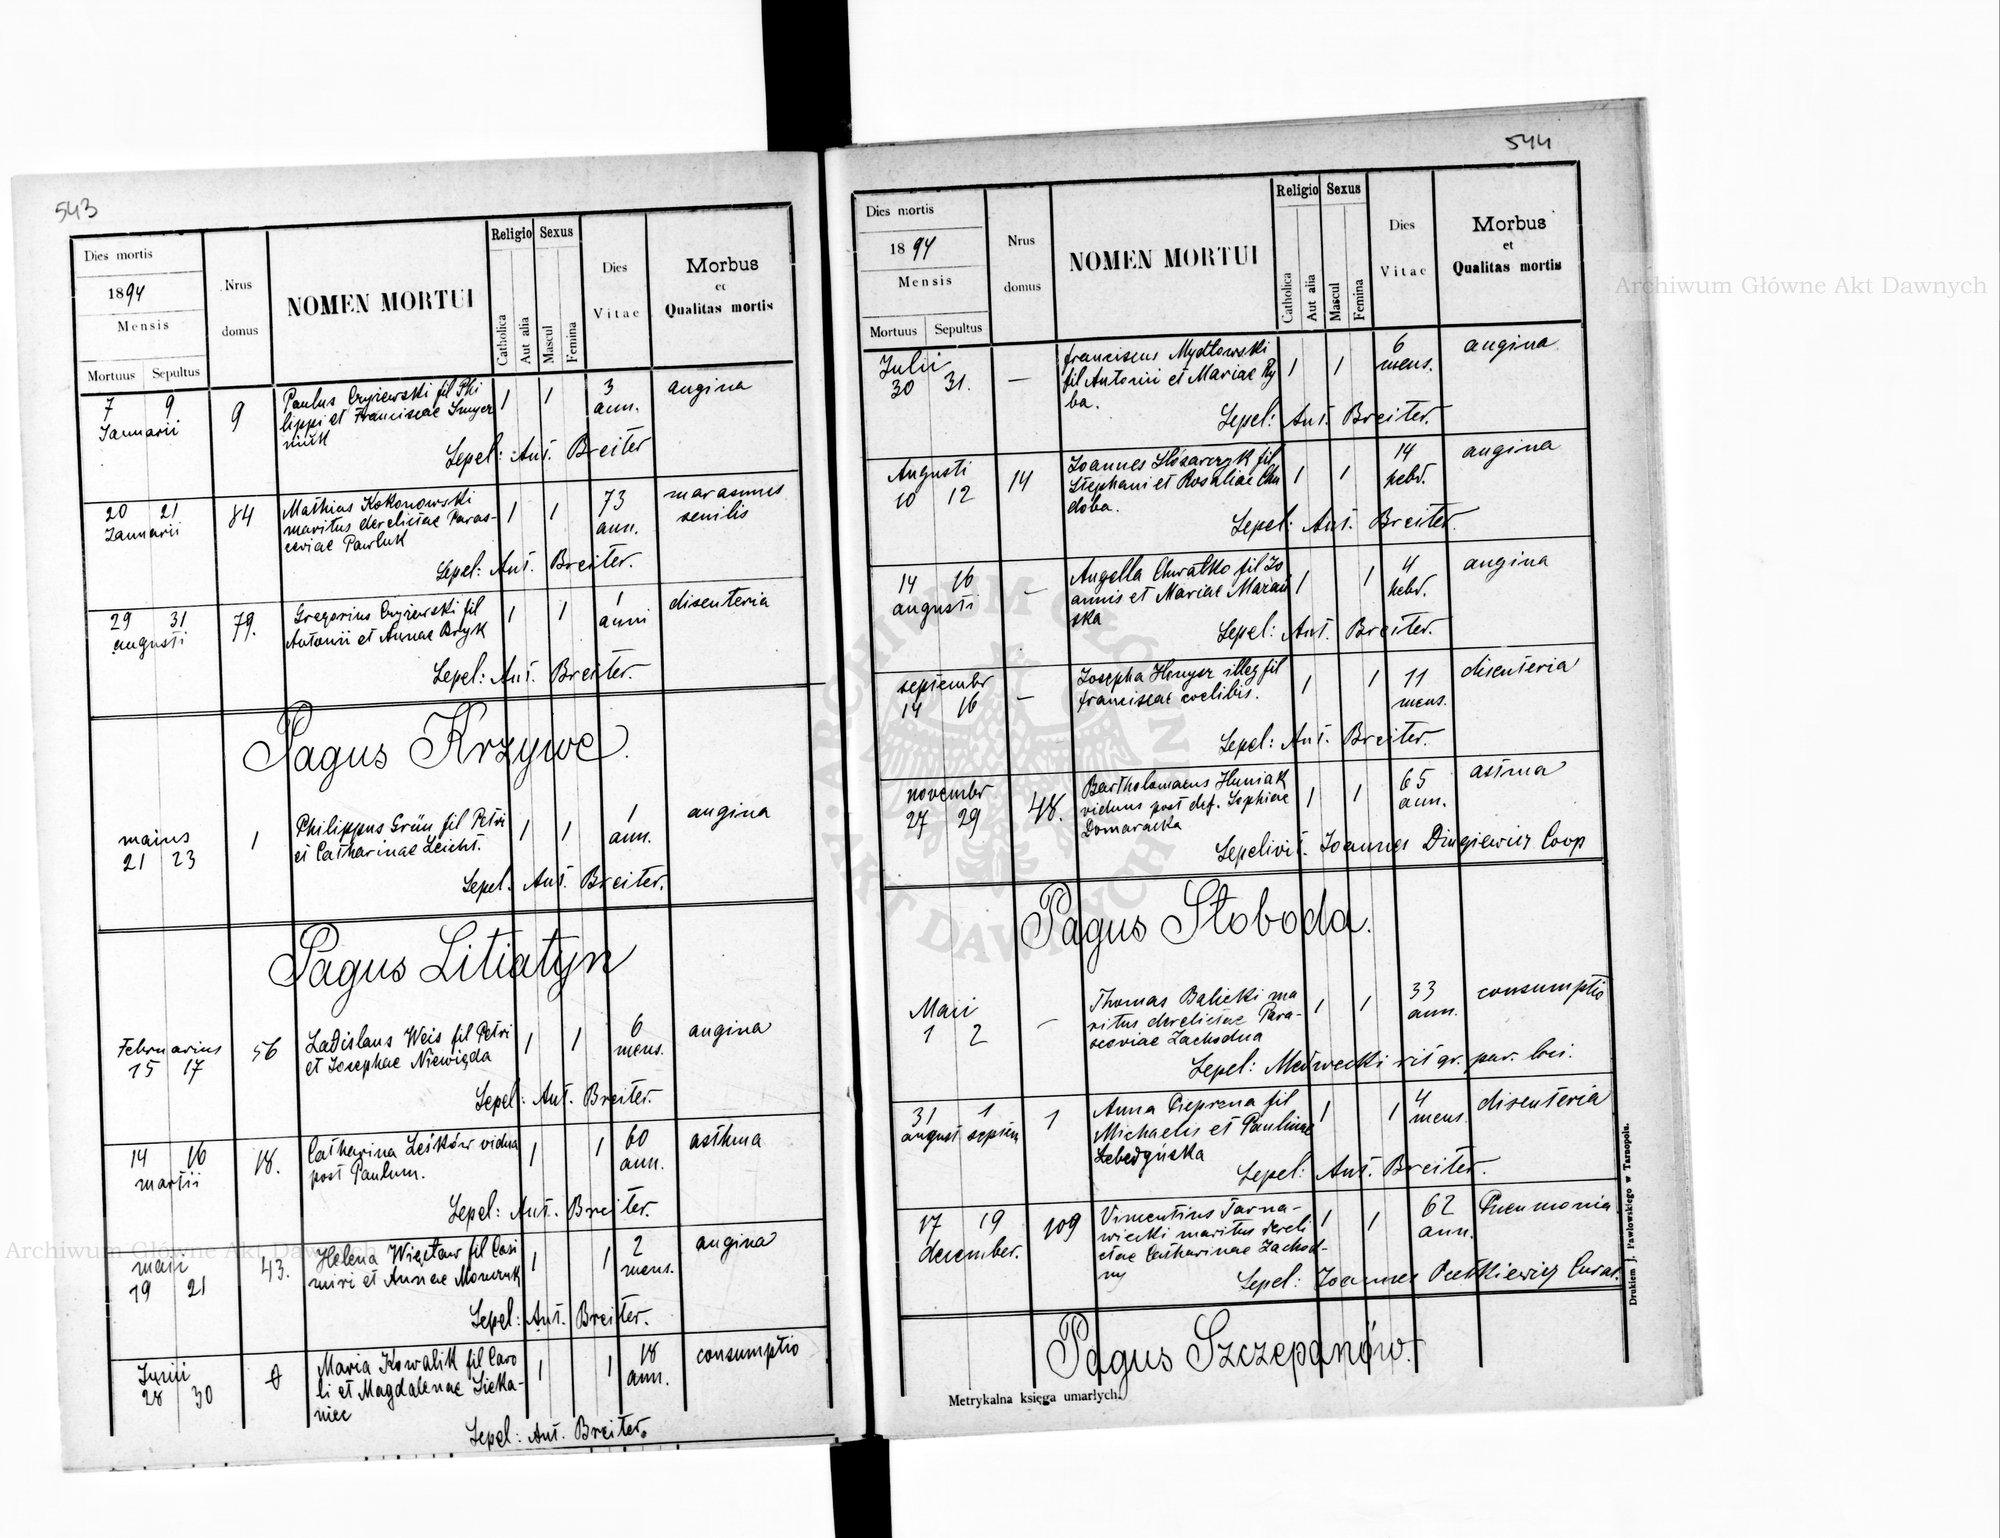 543
Dies mortis
1894
Mensis
Mortuus Sepultus
Nrus
domus
NOMEN MORTUI
Religio
Catholica
Aut alia
Sexus
Mascul
Femina
Dies
Vitae
Morbus
et
Qualitas mortis
7 9
Januarii
9
Paulus Czyżewski fil Phi
lippi et Franciscae
1 1
3
ann.
angina
Sepel: Ant. Breiter
20 21
Januarii
84
Mathias Kokonowski
maritus derelictae Paras-
ceviae Pawluk
1 1
73
ann.
marasmus
senilis
Sepel: Ant. Breiter.
29 31
augusti
79.
Gregorius Czyżewski fil
Antonii et Annae Bryk
1 1
1
anni
disenteria
Sepel: Ant. Breiter.
Pagus Krzywe.
maius
21 23
1
Philippus Grün fil Petri
et Catharinae Leicht.
1 1
1
ann.
angina
Sepel. Ant. Breiter.
Pagus Litiatyn
Februarius
15 17
56
Ladislaus Weis fil Petri
et Josephae Niewięda
1 1
6
mens.
angina
Sepel: Ant. Breiter.
14 16
martii
18.
Catharina Leśków vidua
post Paulum.
1 1
60
ann.
asthma
Sepel: Ant. Breiter.
maii
19 21
43.
Helena Więcław fil Casi
miri et Annae Monczuk
1 1
2
mens.
angina
Sepel: Ant. Breiter.
Junii
28 30
Maria Kowalik fil Caro
li et Magdalenae Sieka-
niec
1 1
18
ann.
consumptio
Sepel: Ant. Breiter.
544
Dies mortis
1894
Mensis
Mortuus Sepultus
Nrus
domus
NOMEN MORTUI
Religio
Catholica
Aut alia
Sexus
Mascul
Femina
Dies
Vitae
Morbus
et
Qualitas mortis
Julii
30 31.
—
franciscus Mydłowski
fil Antonii et Mariae Ry
ba.
1 1
6
mens.
angina
Sepel: Ant. Breiter.
Augusti
10 12
14
Joannes Ślósarczyk fil
Stephani et Rosaliae Chu
doba.
1 1
14
hebd.
angina
Sepel: Ant. Breiter.
14 16
augusti
—
Angella Chwałko fil Jo
annis et Mariae Mazań
ska
1 1
4
hebd.
angina
Sepel: Ant. Breiter.
septembr
14 16
—
Josepha Hmyer illeg fil
franciscae coelibis.
1 1
11
mens.
disenteria
Sepel: Ant. Breiter.
novembr
27 29
48.
Bartholomaeus Huniak
viduus post def. Sophiae
Domaracka
1 1
65
ann.
astma
Sepelivit. Joannes Dziugiewicz Coop
Pagus Słoboda.
Maii
1 2
—
Thomas Balicki ma
ritus derelictae Para-
sceviae Zachodna
1 1
33
ann.
consumptio
Sepel: Medwecki rit gr. par. loci.
31 1
august septem
1
Anna Pieprzna fil
Michaelis et Paulinae
Łebedyńska
1 1
4
mens
disenteria
Sepel: Ant. Breiter.
17 19
december.
109
Vincentius Tarna-
wiecki maritus dereli
ctae Catharinae Zachod-
ny
1 1
62
ann.
Pneumonia
Sepel: Joannes Pietkiewicz Curat.
Pagus Szczepanów.
Metrykalna księga umarłych.
Drukiem J. Pawłowskiego w Tarnopolu.
Archiwum Główne Akt Dawnych
Archiwum Główne Akt Dawnych
ARCHIWUM GŁÓWNE AKT DAWNYCH